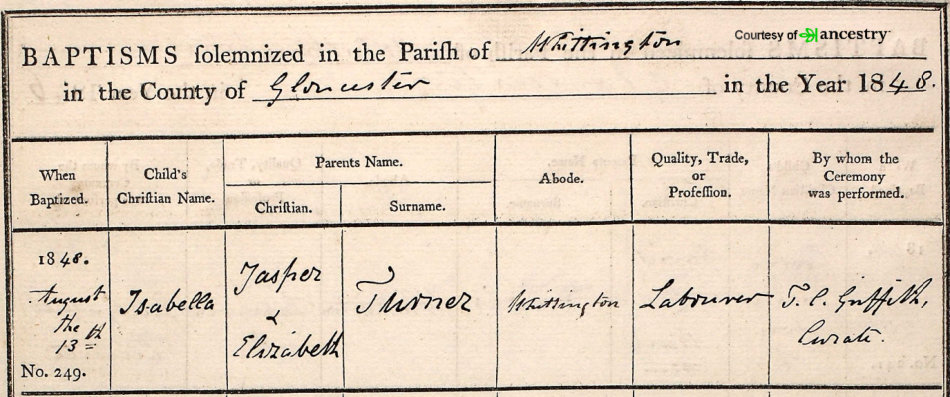 Courtesy of ancestry
BAPTISMS solemnized in the Parish of Whittington
in the County of Gloucester in the Year 1848.
When Baptized.
Child's Christian Name.
Parents Name.
Christian.
Surname.
Abode.
Quality, Trade, or Profession.
By whom the Ceremony was performed.
1848.
August
the
13th
No. 249.
Isabella
Jasper
&
Elizabeth
Turner
Whittington
Labourer
T. C. Griffith,
Curate.